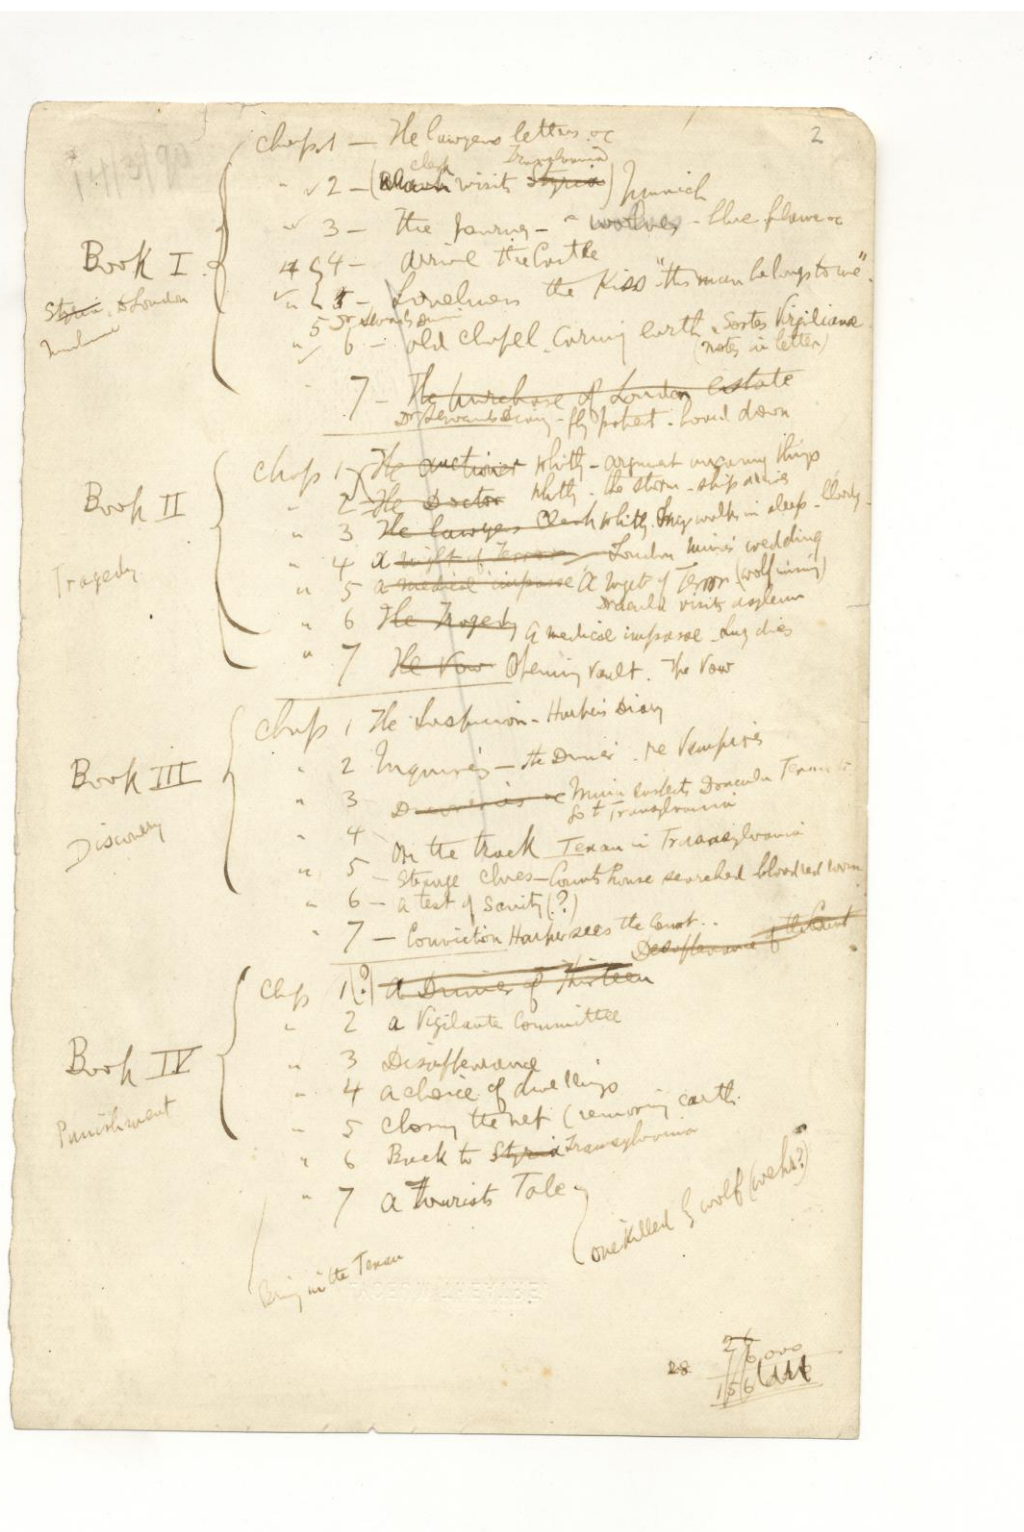 2
Chap 1 — The lawyers letters &c
" 2 — (clerk visits Styria Transylvania) Munich
" 3 — The journey — wolves - blue flame &c
Book I
" 4 — arrive the Castle
Styria to London
" 5 — Loneliness the Kiss "this man belongs to me"
5 Dr Sewards Diary
" 6 — old chapel. Carrying earth. Sortes Virgilianae
(notes in letter)
" 7 — The purchase of London estate
Dr Sewards Diary - fly patient.
Chap 1 — The auctioneer Whitby - argument uncanny things
Book II
" 2 The Doctor Whitby - the storm - ship arrives
" 3 The lawyers Clerk Whitby. Lucy walks in sleep - bloody -
" 4 A night of Terror London Mina's wedding
Tragedy
" 5 a medical impasse A night of Terror (wolf missing)
Dracula visits asylum
" 6 The Tragedy A medical impasse - Lucy dies
" 7 The Vow Opening vault. The Vow
Chap 1 The Suspicion - Harker's Diary
" 2 Inquiries — the Dinner. re Vampires
Book III
" 3 Discoveries &c Mina suspects Dracula Texan
go to Transylvania
Discovery
" 4 On the track Texan in Transylvania
" 5 - Strange clues — Counts house searched blood red room
" 6 — a test of Sanity (?)
" 7 — Conviction Harker sees the Count..
Disappearance of the Count
Chap 1 (?) a Dinner of Thirteen
" 2 a Vigilante Committee
Book IV
" 3 Disappearance
" 4 a choice of dwellings
Punishment
" 5 closing the net (removing earth
" 6 Back to Styria Transylvania
" 7 a tourists Tale -
one killed by wolf (wehr?)
Bring in the Texan
28